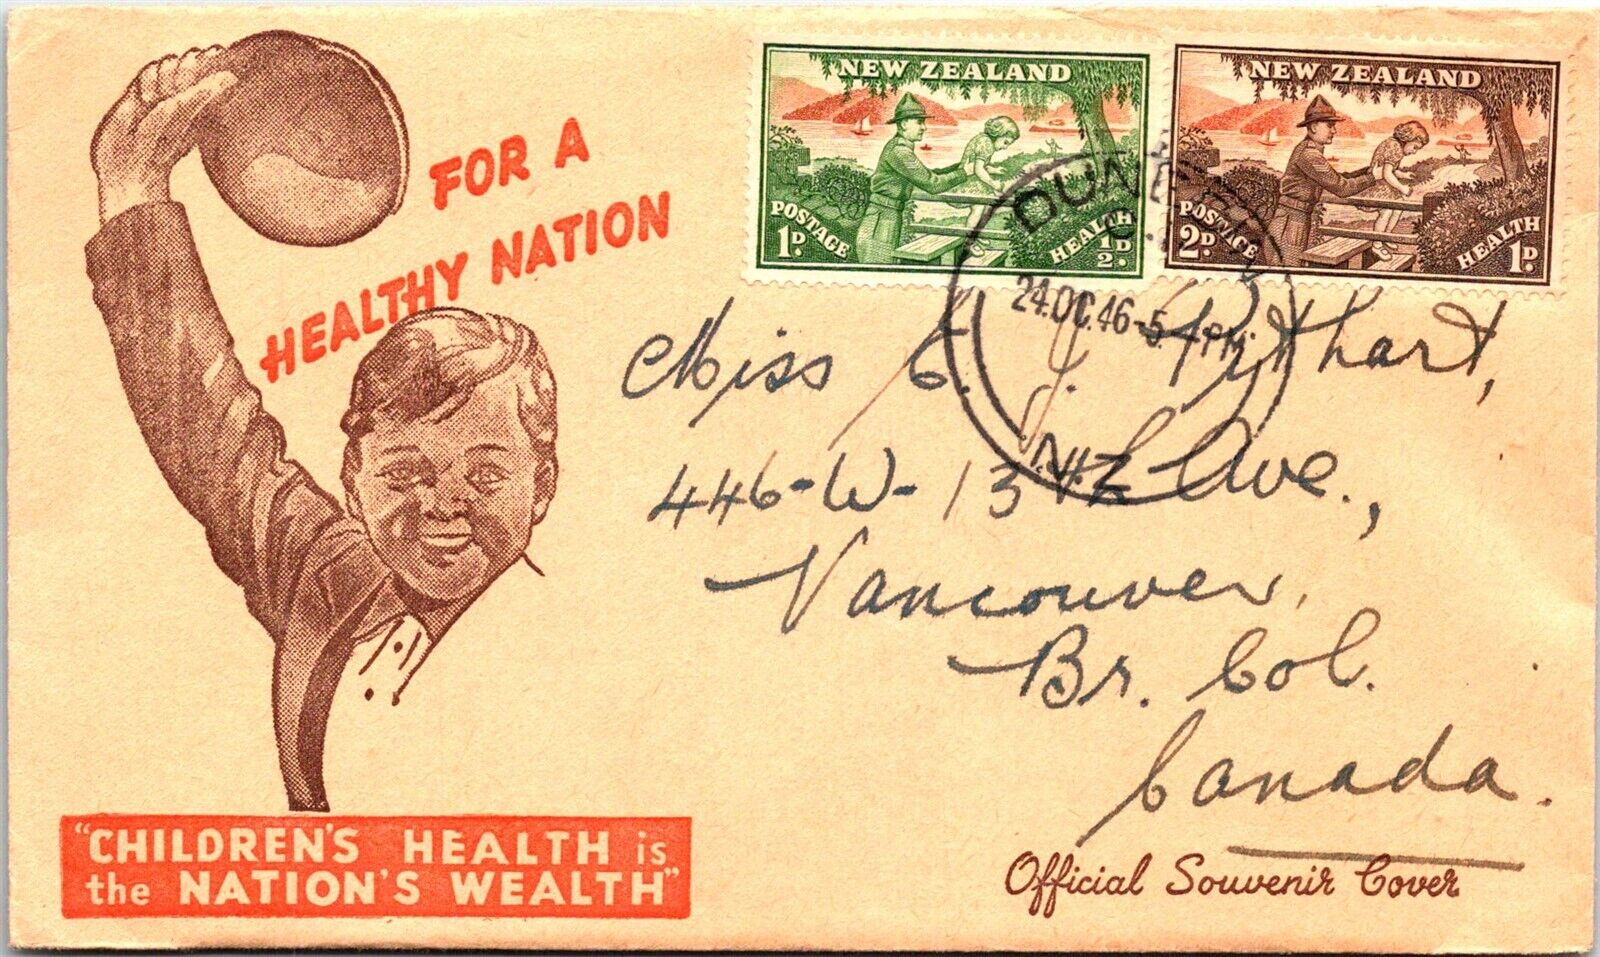 FOR A
HEALTHY NATION
NEW ZEALAND
POSTAGE HEALTH
1D. ½D.
NEW ZEALAND
POSTAGE HEALTH
2D. 1D.
DUNEDIN
24.OC.46-5 PM
N.Z.
Miss C. J.
446-W-13th Ave.,
Vancouver,
Br. Col.
Canada.
"CHILDREN'S HEALTH is
the NATION'S WEALTH"
Official Souvenir Cover